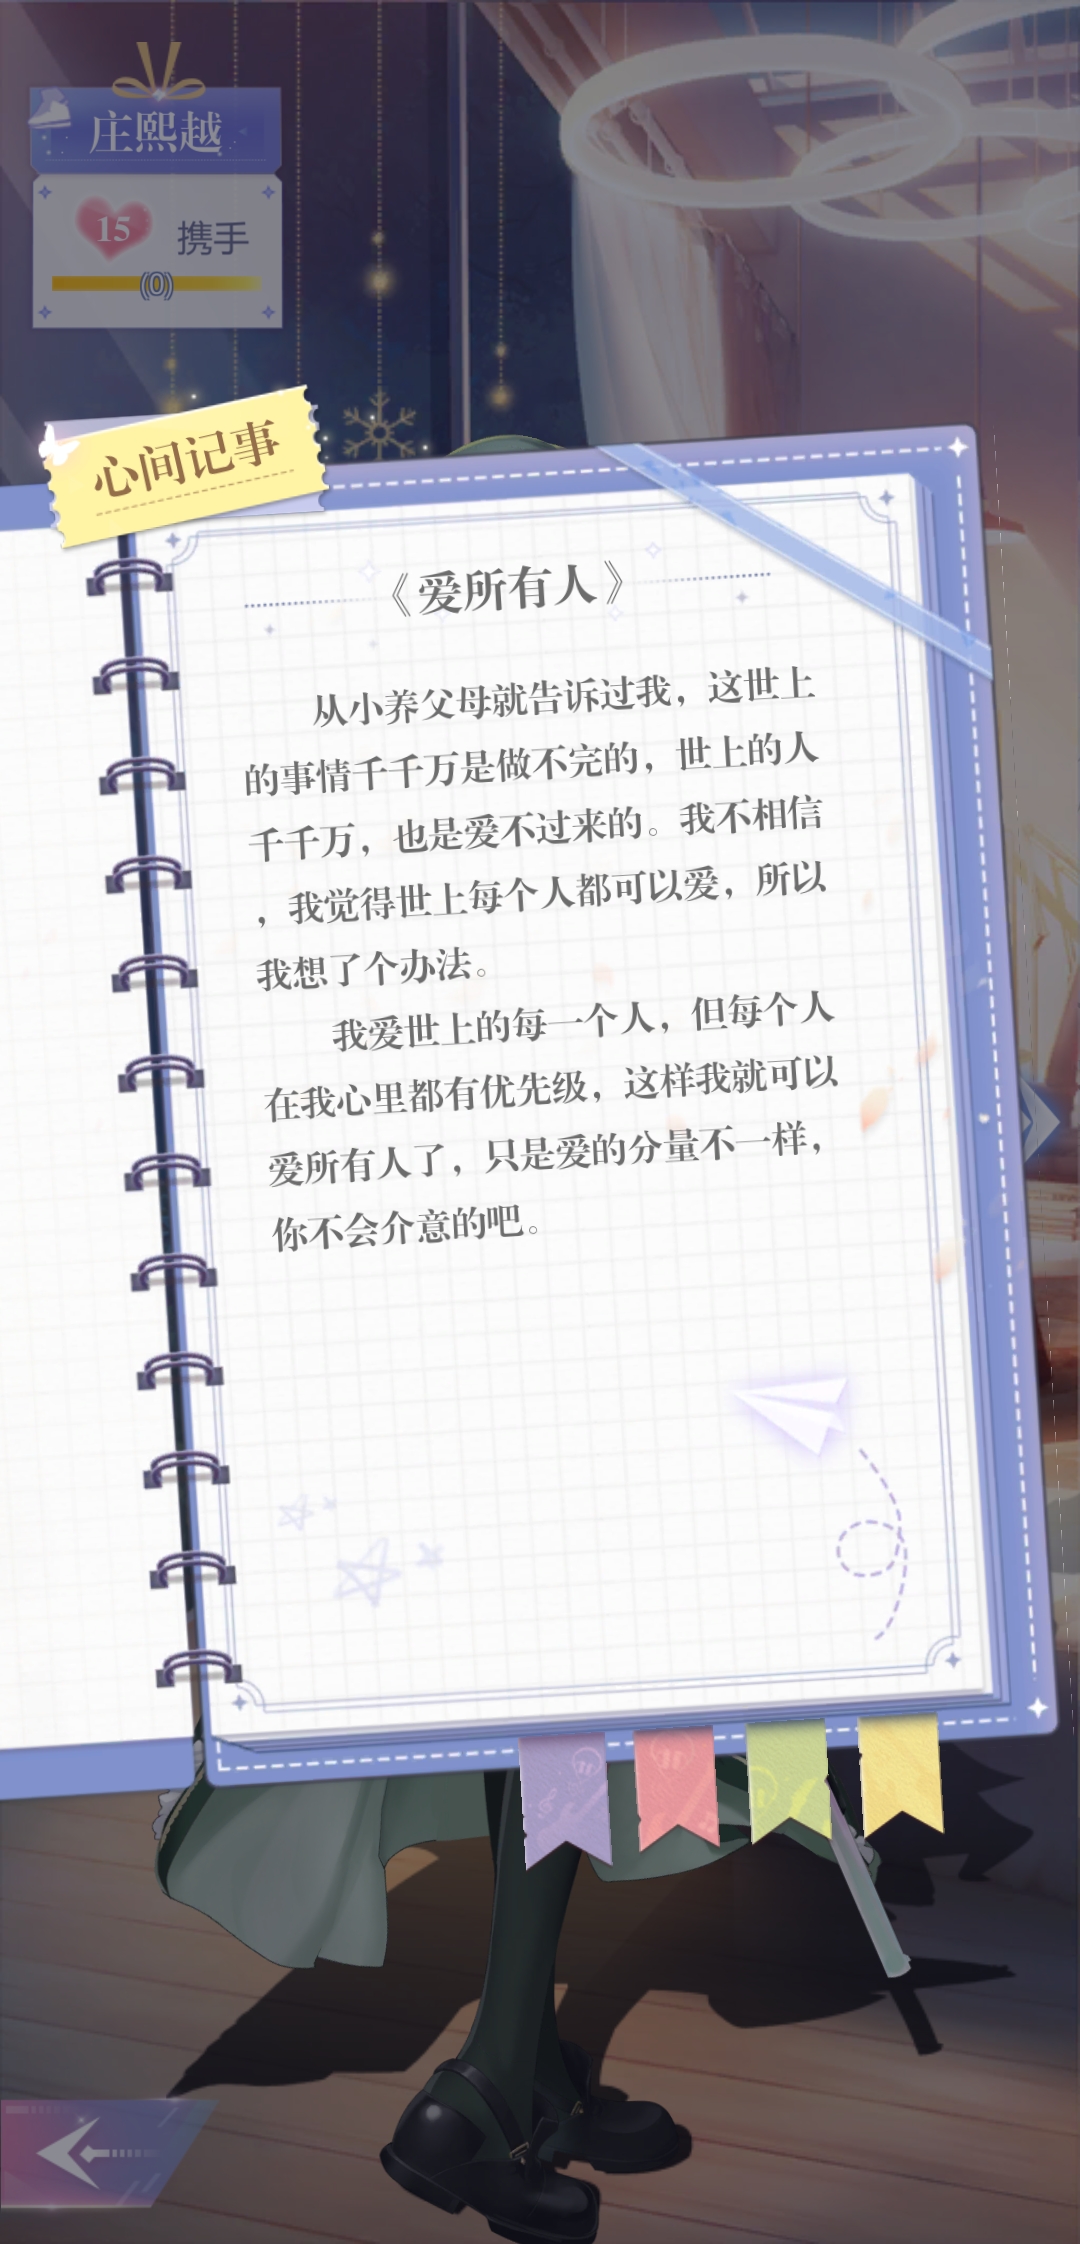 庄熙越
15 携手
(0)
心间记事
《爱所有人》
从小养父母就告诉过我，这世上
的事情千千万是做不完的，世上的人
千千万，也是爱不过来的。我不相信
，我觉得世上每个人都可以爱，所以
我想了个办法。
我爱世上的每一个人，但每个人
在我心里都有优先级，这样我就可以
爱所有人了，只是爱的分量不一样，
你不会介意的吧。